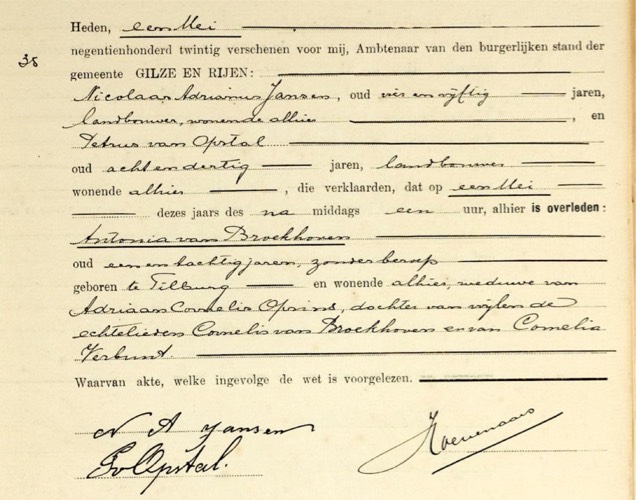 Heden, een Mei
negentienhonderd twintig verschenen voor mij, Ambtenaar van den burgerlijken stand der
35
gemeente GILZE EN RIJEN:
Nicolaas Adrianus Jansen, oud vier en vijftig jaren,
landbouwer, wonende alhier, en
Petrus van Opstal
oud acht en dertig jaren, landbouwer
wonende alhier, die verklaarden, dat op een Mei
dezes jaars des na middags een uur, alhier is overleden:
Antonia van Broekhoven
oud een en tachtig jaren, zonder beroep
geboren te Tilburg en wonende alhier, weduwe van
Adriaan Cornelis Oprins, dochter van wijlen de
echtelieden Cornelis van Broekhoven en van Cornelia
Verbunt.
Waarvan akte, welke ingevolge de wet is voorgelezen.
N A Jansen
P v Opstal.